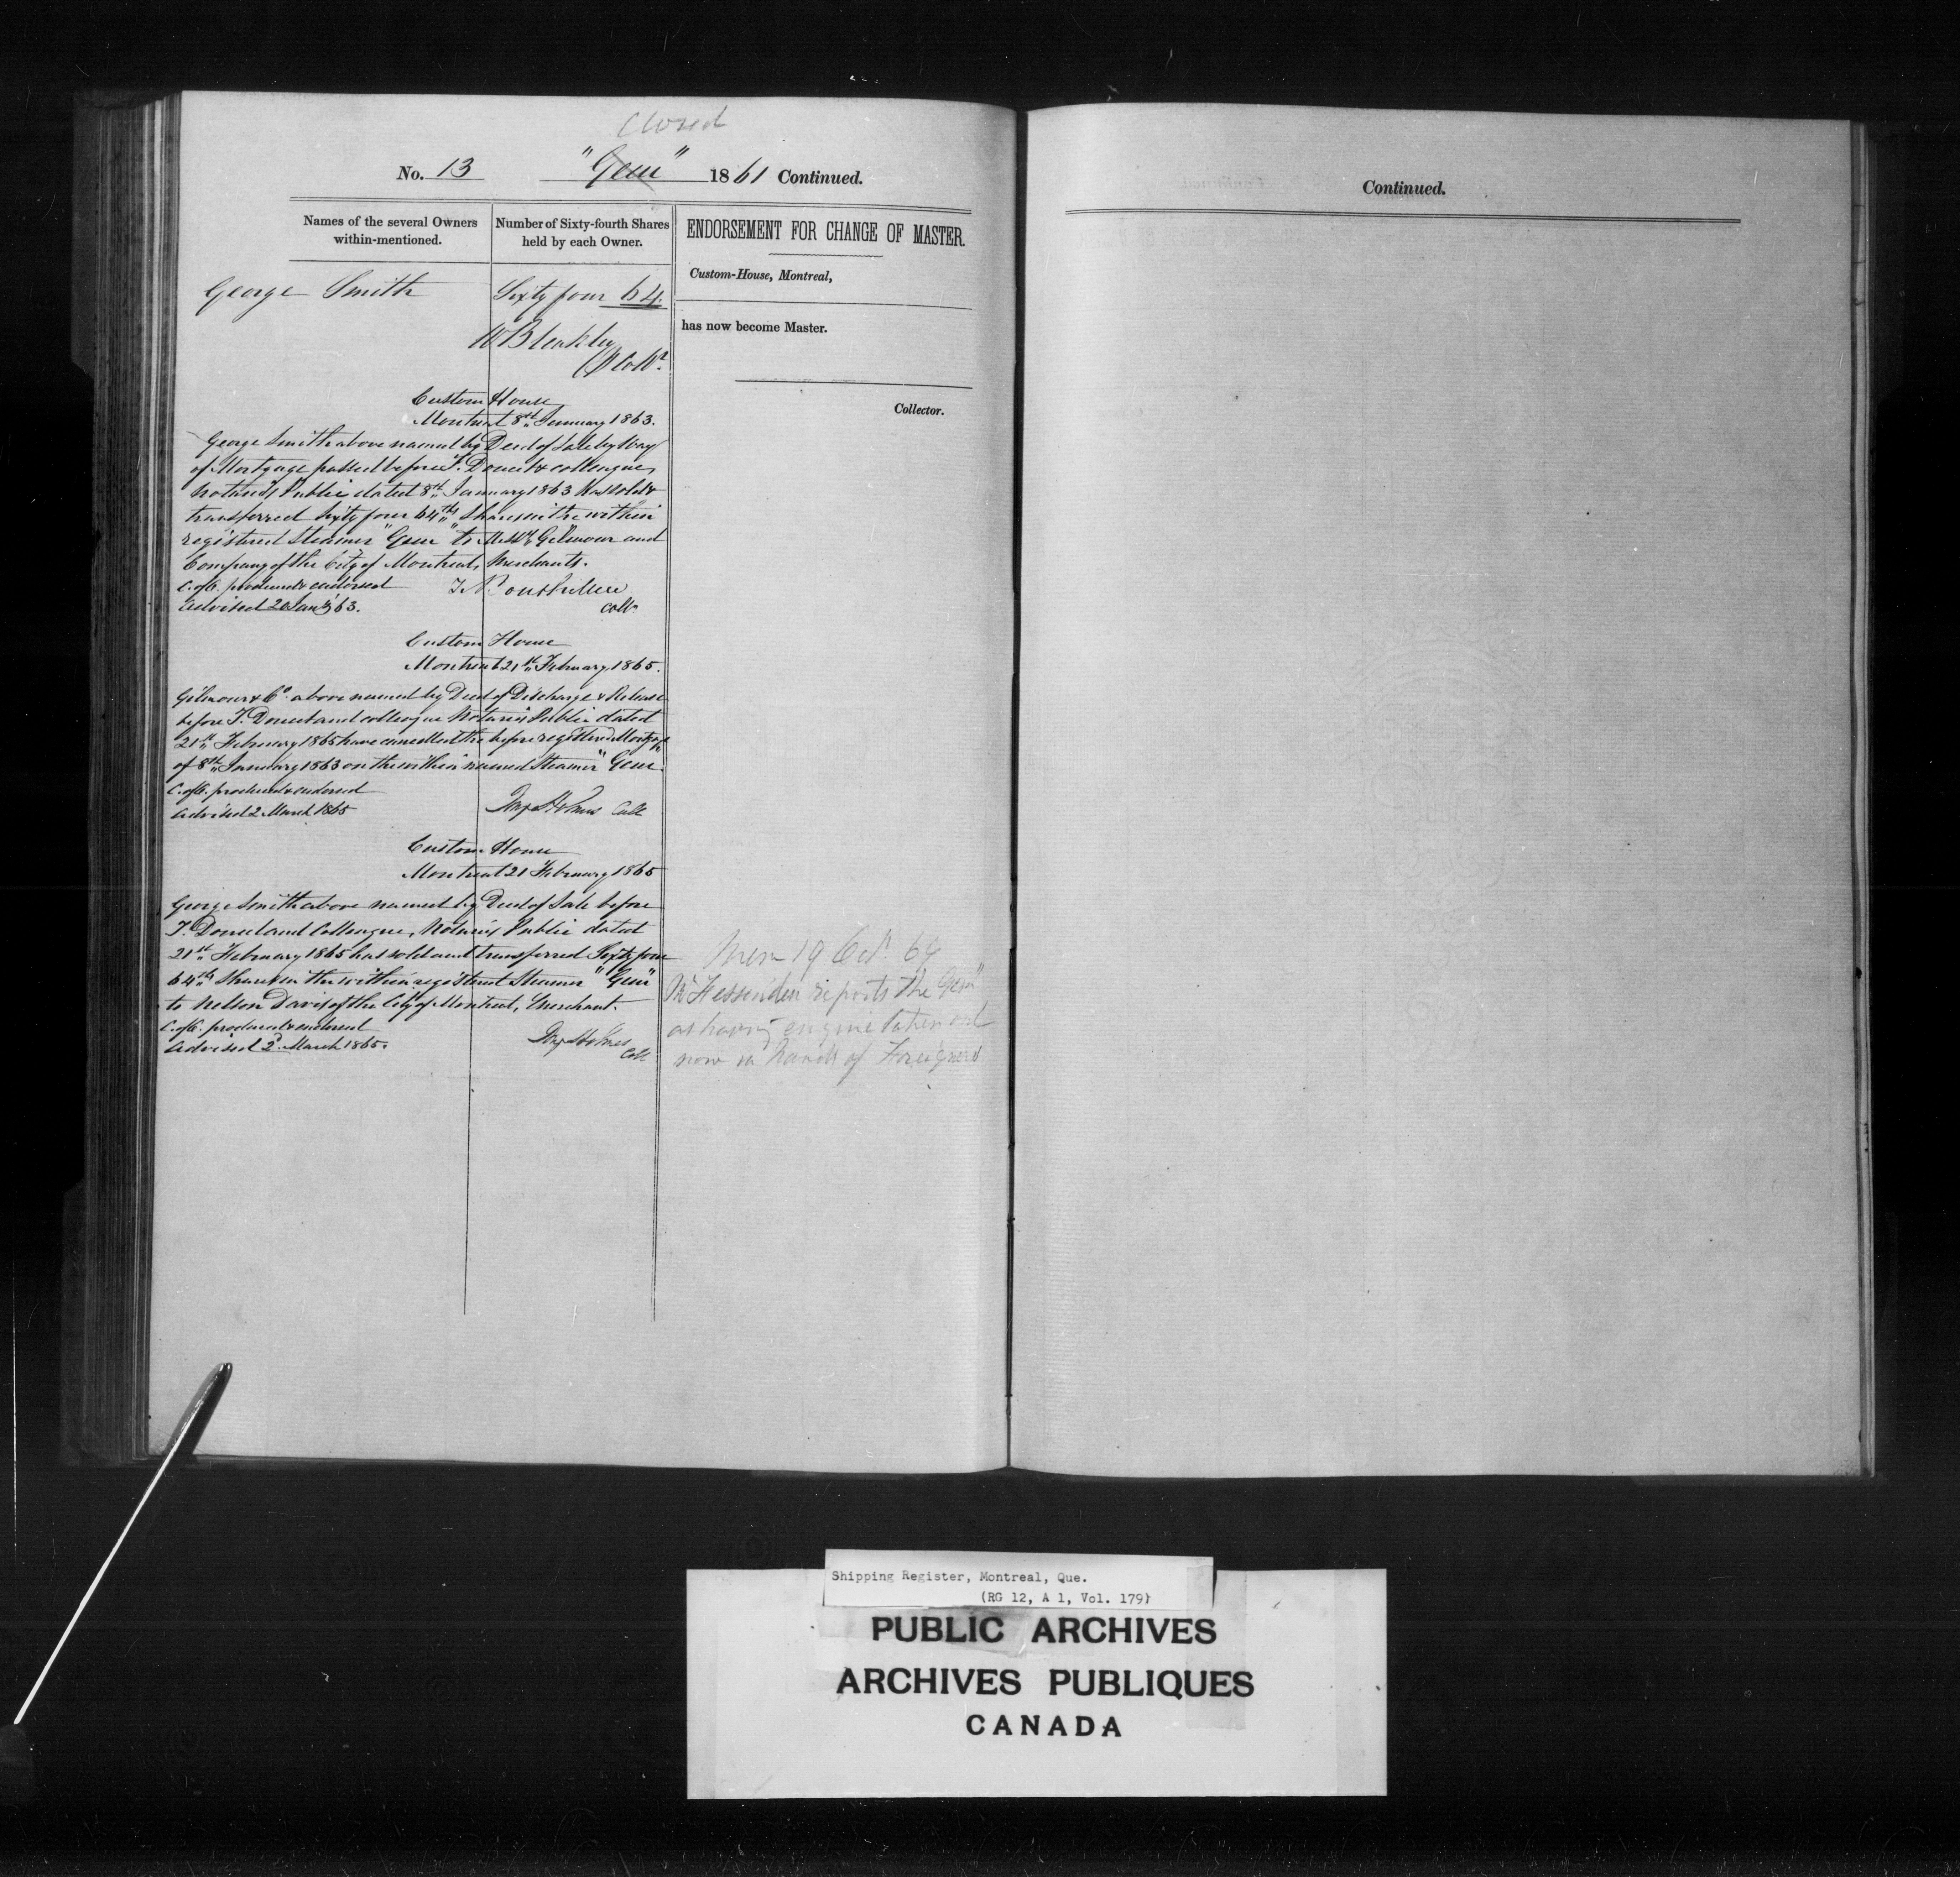 Closed
No. 13 "Gem" 1861 Continued.
Names of the several Owners within-mentioned.
Number of Sixty-fourth Shares held by each Owner.
George Smith Sixty four 64.
W Bleakley
Collr.
Custom House
Montreal 8th January 1863.
George Smith above named by Deed of Sale by Way
of Mortgage passed before T. Doucet & colleague,
Notaries Public dated 8th January 1863 has sold &
transferred Sixty four 64ths Shares in the within
registered Steamer "Gem" to Messrs Gilmour and
Company of the City of Montreal, Merchants.
C. of R. produced & endorsed
Advised 20 Jany 63.
Coll.
Custom House
Montreal 21st February 1865.
Gilmour & Co. above named by Deed of Discharge & Release
before T. Doucet and colleague Notaries Public dated
21st February 1865 have cancelled the before registered Mortgage
of 8th January 1863 on the within named Steamer "Gem.
C. of R. produced & endorsed
Advised 2 March 1865
Benj Holmes Coll
Custom House
Montreal 21 February 1865
George Smith above named by Deed of Sale before
T. Doucet and Colleague, Notaries Public dated
21st February 1865 has sold and transferred Sixty four
64ths Shares in the within registered Steamer "Gem"
to Nelson Davis of the City of Montreal, Merchant.
C. of R. produced & endorsed
Advised 2d. March 1865.
Benj Holmes
Coll
ENDORSEMENT FOR CHANGE OF MASTER.
Custom-House, Montreal,
has now become Master.
Collector.
Mem 19 Oct. 69
Mr Fessenden reports the "Gem"
as having engine taken out
now in hands of Foreigners
Continued.
Shipping Register, Montreal, Que.
(RG 12, A 1, Vol. 179)
PUBLIC ARCHIVES
ARCHIVES PUBLIQUES
CANADA